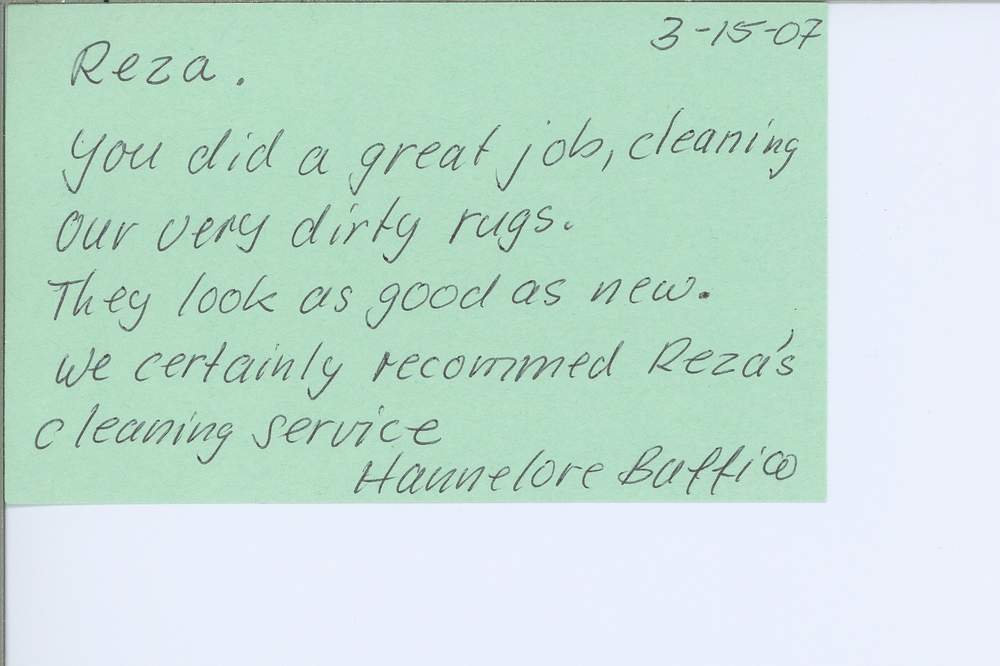 3-15-07
Reza.
You did a great job, cleaning
our very dirty rugs.
They look as good as new.
We certainly recommed Reza's
cleaning service
Hannelore Baffico